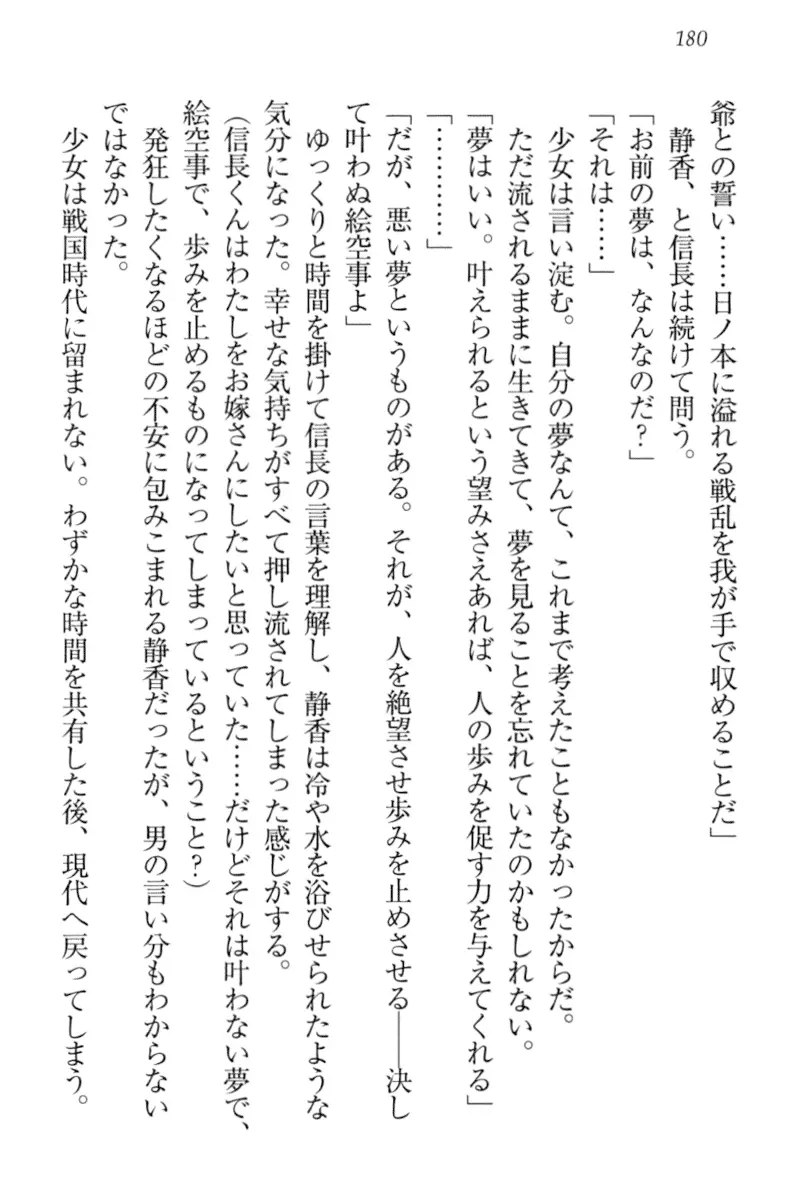 180
爺との誓い……日ノ本に溢れる戦乱を我が手で収めることだ」
　静香、と信長は続けて問う。
「お前の夢は、なんなのだ？」
「それは……」
　少女は言い淀む。自分の夢なんて、これまで考えたこともなかったからだ。
　ただ流されるままに生きてきて、夢を見ることを忘れていたのかもしれない。
「夢はいい。叶えられるという望みさえあれば、人の歩みを促す力を与えてくれる」
「…………」
「だが、悪い夢というものがある。それが、人を絶望させ歩みを止めさせる――決し
て叶わぬ絵空事よ」
　ゆっくりと時間を掛けて信長の言葉を理解し、静香は冷や水を浴びせられたような
気分になった。幸せな気持ちがすべて押し流されてしまった感じがする。
（信長くんはわたしをお嫁さんにしたいと思っていた……だけどそれは叶わない夢で、
絵空事で、歩みを止めるものになってしまっているということ？）
　発狂したくなるほどの不安に包みこまれる静香だったが、男の言い分もわからない
ではなかった。
　少女は戦国時代に留まれない。わずかな時間を共有した後、現代へ戻ってしまう。